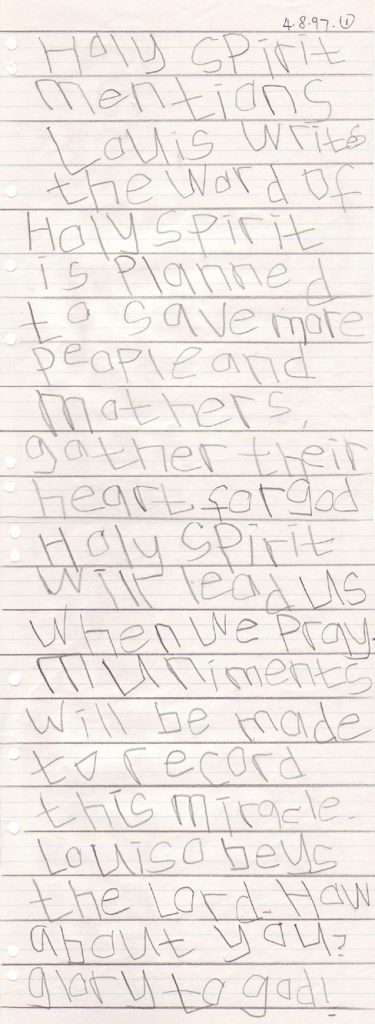 4.8.97. ①
Holy Spirit
mentions
Louis writes
the word of
Holy Spirit
is planned
to save more
people and
mothers,
gather their
heart for god
Holy Spirit
will lead us
when we pray.
muniments
will be made
to record
this miracle.
Louis obeys
the Lord. How
about you?
glory to god!